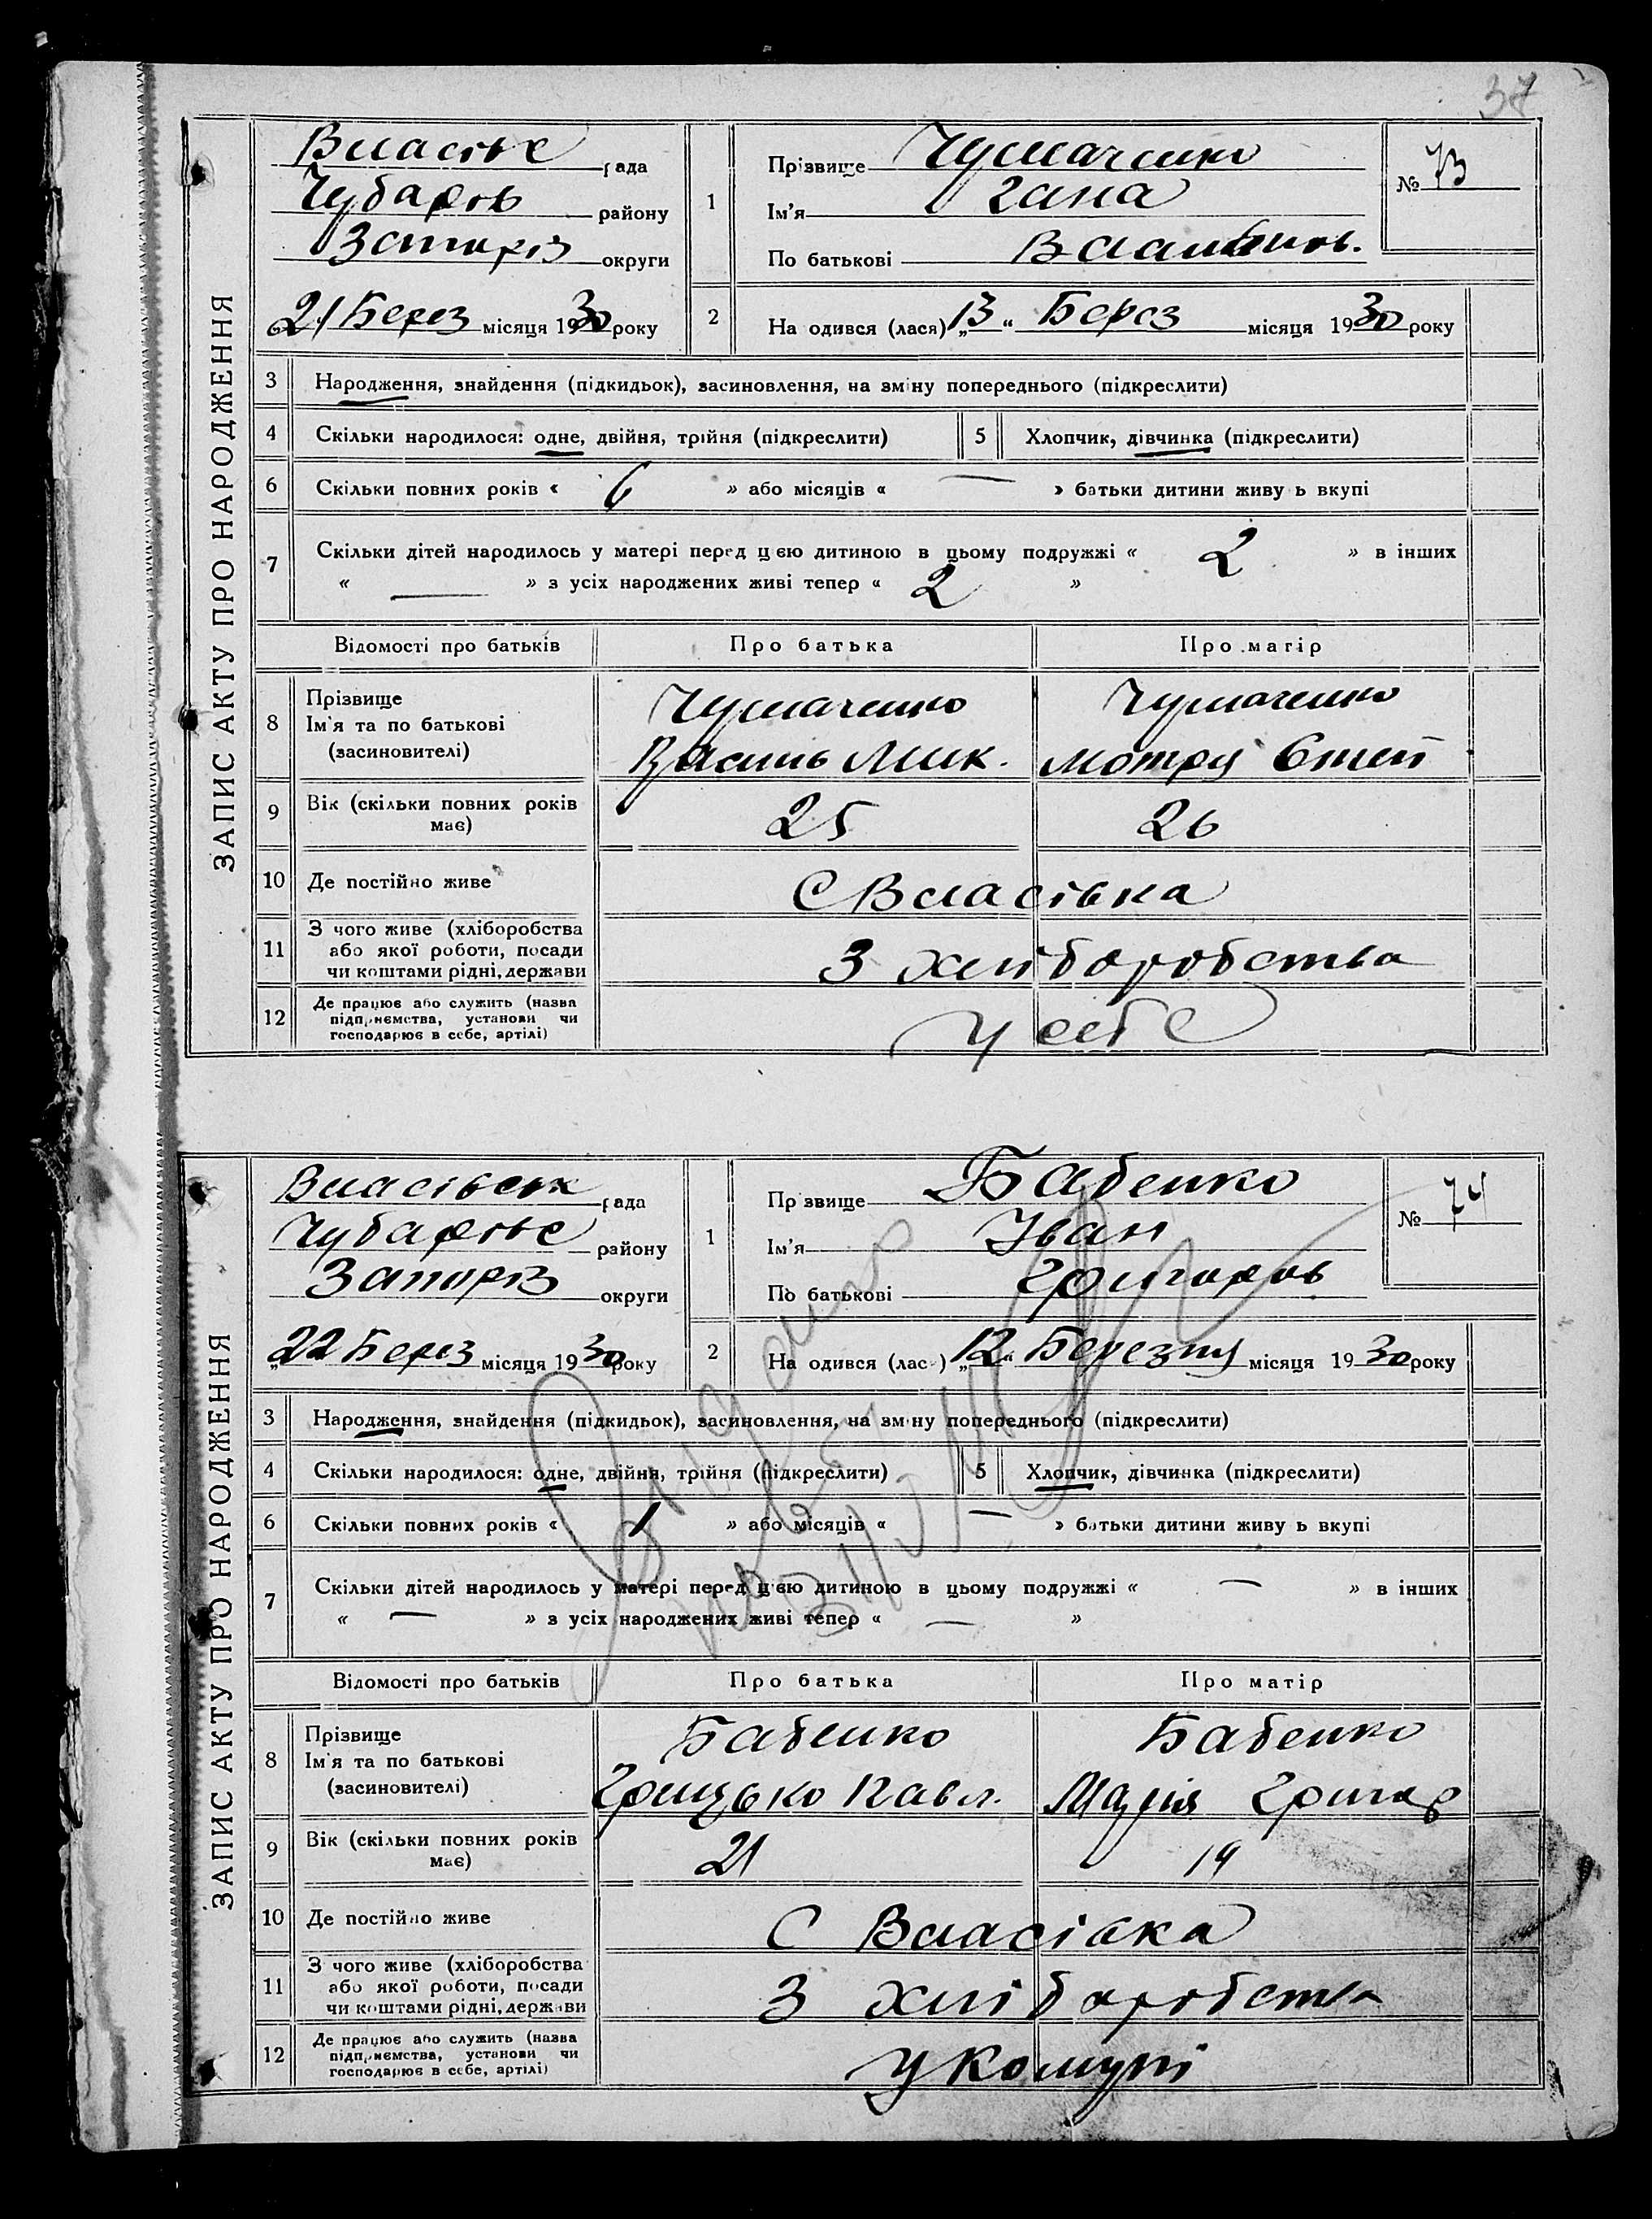 37
ЗАПИС АКТУ ПРО НАРОДЖЕННЯ
Власівс рада
Чубарів району
Запоріз округи
„21 Берез місяця 1930 року
1 Прізвище Чумаченко
Ім'я Гана
По батькові
№ 73
2 На одився (лася) „13“ Берез місяця 1930 року
3 Народження, знайдення (підкидьок), засиновлення, на зміну попереднього (підкреслити)
4 Скільки народилося: одне, двійня, трійня (підкреслити) 5 Хлопчик, дівчинка (підкреслити)
6 Скільки повних років « 6 » або місяців « — » батьки дитини живу ь вкупі
7 Скільки дітей народилось у матері перед цією дитиною в цьому подружжі « 2 » в інших
« — » з усіх народжених живі тепер « 2 »
Відомості про батьків Про батька Про матір
8 Прізвище Чумаченко Чумаченко
Ім'я та по батькові Василь Мик. Мотря Степ
(засиновителі)
9 Вік (скільки повних років має) 25 26
10 Де постійно живе С Власівка
11 З чого живе (хліборобства
або якої роботи, посади З хліборобства
чи коштами рідні, держави
12 Де працює або служить (назва
підприємства, установи чи У себе
господарює в себе, артілі)
ЗАПИС АКТУ ПРО НАРОДЖЕННЯ
Власівськ рада
Чубарівс району
Запоріз округи
„22 Берез місяця 1930 року
1 Пр звище Бабенко
Ім'я Іван
По батькові Григоров
№ 74
2 На одився (лас ) „12“ Березня місяця 1930 року
3 Народження, знайдення (підкидьок), засиновлення, на зміну попереднього (підкреслити)
4 Скільки народилося: одне, двійня, трійня (підкреслити) 5 Хлопчик, дівчинка (підкреслити)
6 Скільки повних років « 1 » або місяців « — » батьки дитини живу ь вкупі
7 Скільки дітей народилось у матері перед цією дитиною в цьому подружжі « — » в інших
« — » з усіх народжених живі тепер « — »
Відомості про батьків Про батька Про матір
8 Прізвище Бабенко Бабенко
Ім'я та по батькові Грицько Павл. Марія Григор
(засиновителі)
9 Вік (скільки повних років має) 21 19
10 Де постійно живе С Власівка
11 З чого живе (хліборобства
або якої роботи, посади З хліборобства
чи коштами рідні, держави
12 Де працює або служить (назва
підприємства, установи чи У комуні
господарює в себе, артілі)